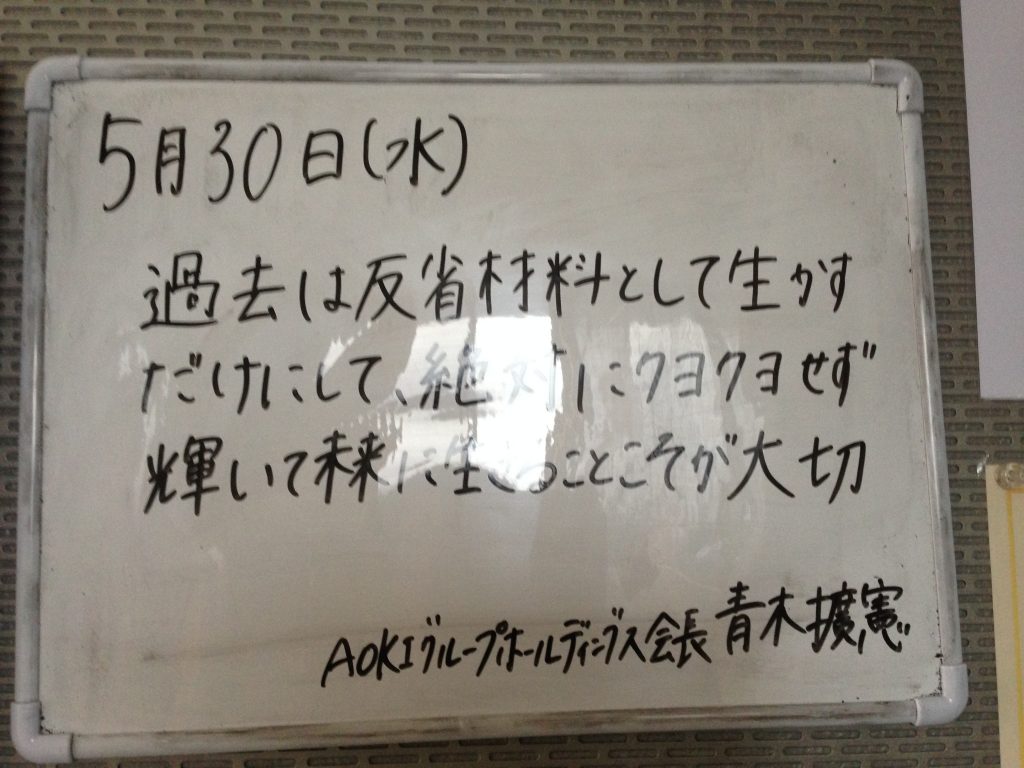 5月30日(水)
過去は反省材料として生かす
だけにして、絶対にクヨクヨせず
輝いて未来に生きることこそが大切
AOKIグループホールディングス会長 青木擴憲